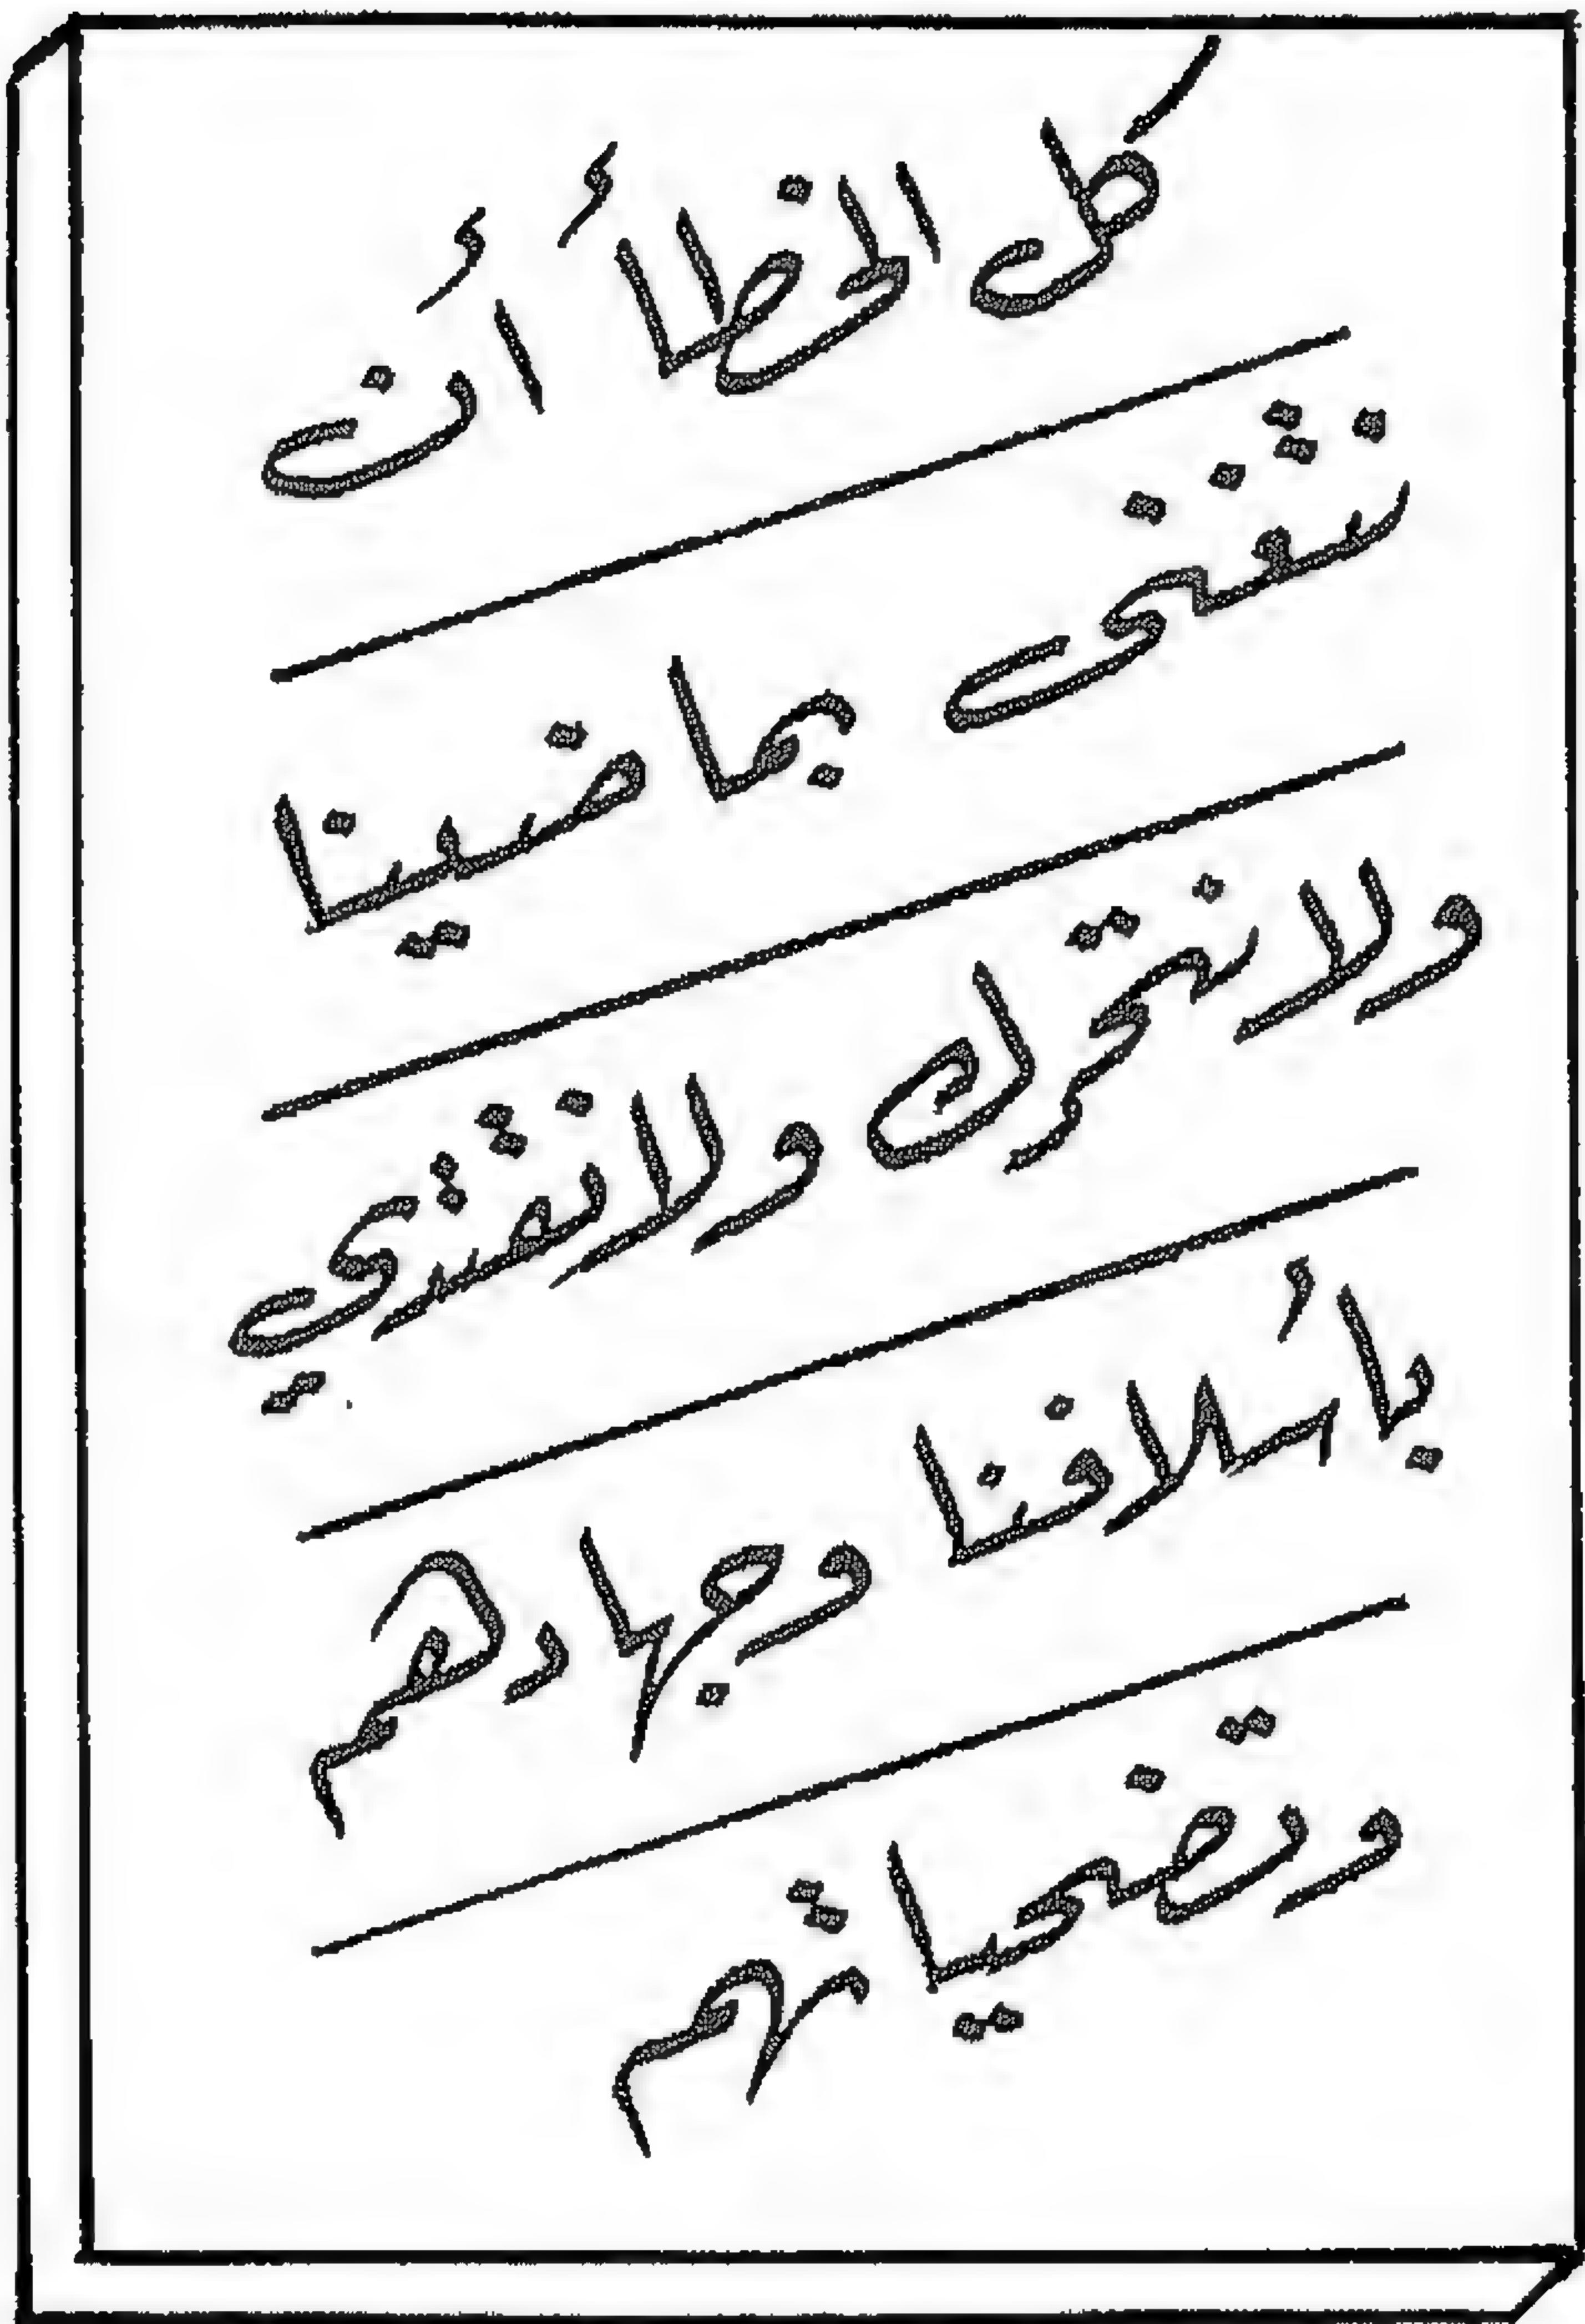 كل الخطأ أن
نتغنى بماضينا
ولا نتحرك ولا نقتدي
بأسلافنا وجهادهم
وتضحياتهم